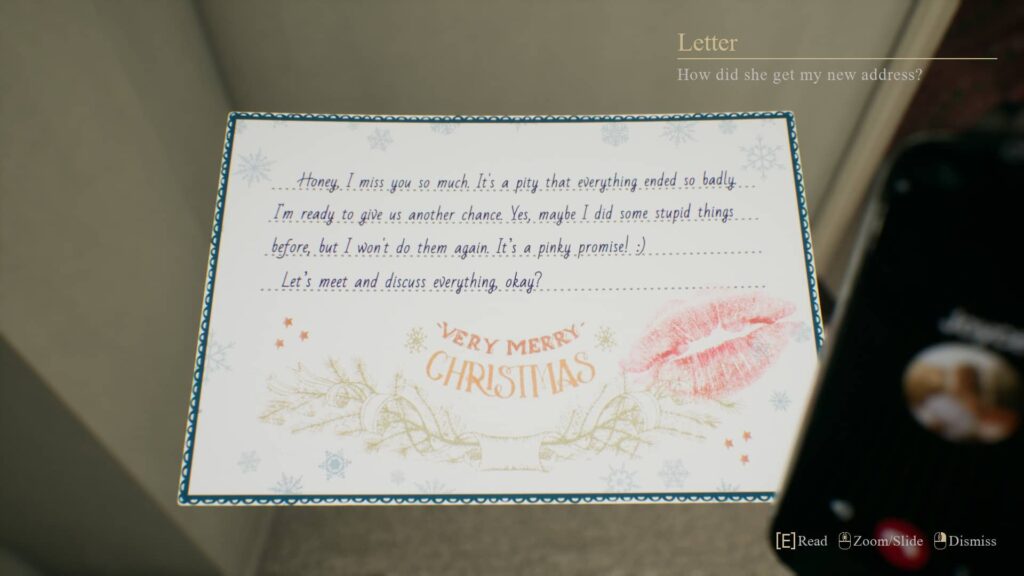 Letter
How did she get my new address?
Honey, I miss you so much. It's a pity that everything ended so badly.
I'm ready to give us another chance. Yes, maybe I did some stupid things
before, but I won't do them again. It's a pinky promise! :)
Let's meet and discuss everything, okay?
VERY MERRY
CHRISTMAS
[E]Read Zoom/Slide Dismiss